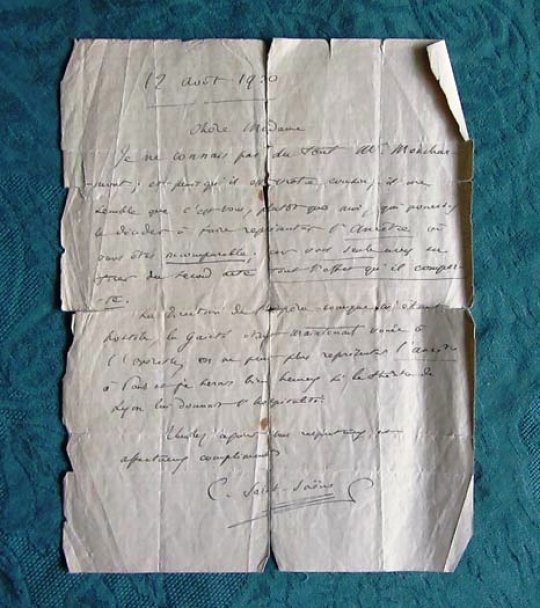 12 août 1920
Chère Madame
Je ne connais pas du tout Mr Monchar-
mont; et puisqu'il est votre cousin, il me
semble que c'est vous, plutôt que moi, qui pouvez
le décider à faire représenter l'Ancêtre où
vous êtes incomparable; car vous seule avez su
tirer du second acte tout l'effet qu'il compor-
te.
La direction de l'Opéra-comique lui étant
hostile, la Gaîté étant maintenant vouée à
l'Opérette, on ne peut plus représenter l'Ancêtre
à Paris et je serais bien heureux si le théâtre de
Lyon lui donnait l'hospitalité.
Veuillez agréer mes
affectueux compliments
C. Saint-Saëns